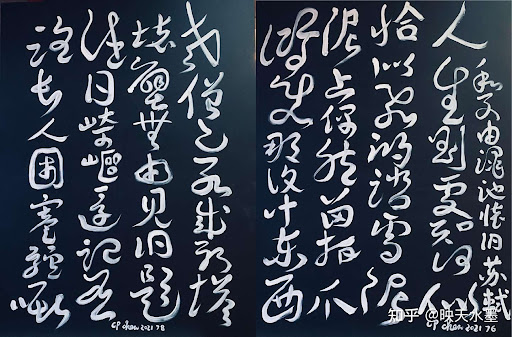 和子由渑池怀旧 苏轼
人生到处知何似
恰似飞鸿踏雪泥
泥上偶然留指爪
鸿飞那复计东西
CP chen 2021 7 6
老僧已死成新塔
壞壁無由见旧题
往日崎嶇还记否
路长人困蹇驴嘶
CP chen 2021 7 8
知乎 @映天水墨